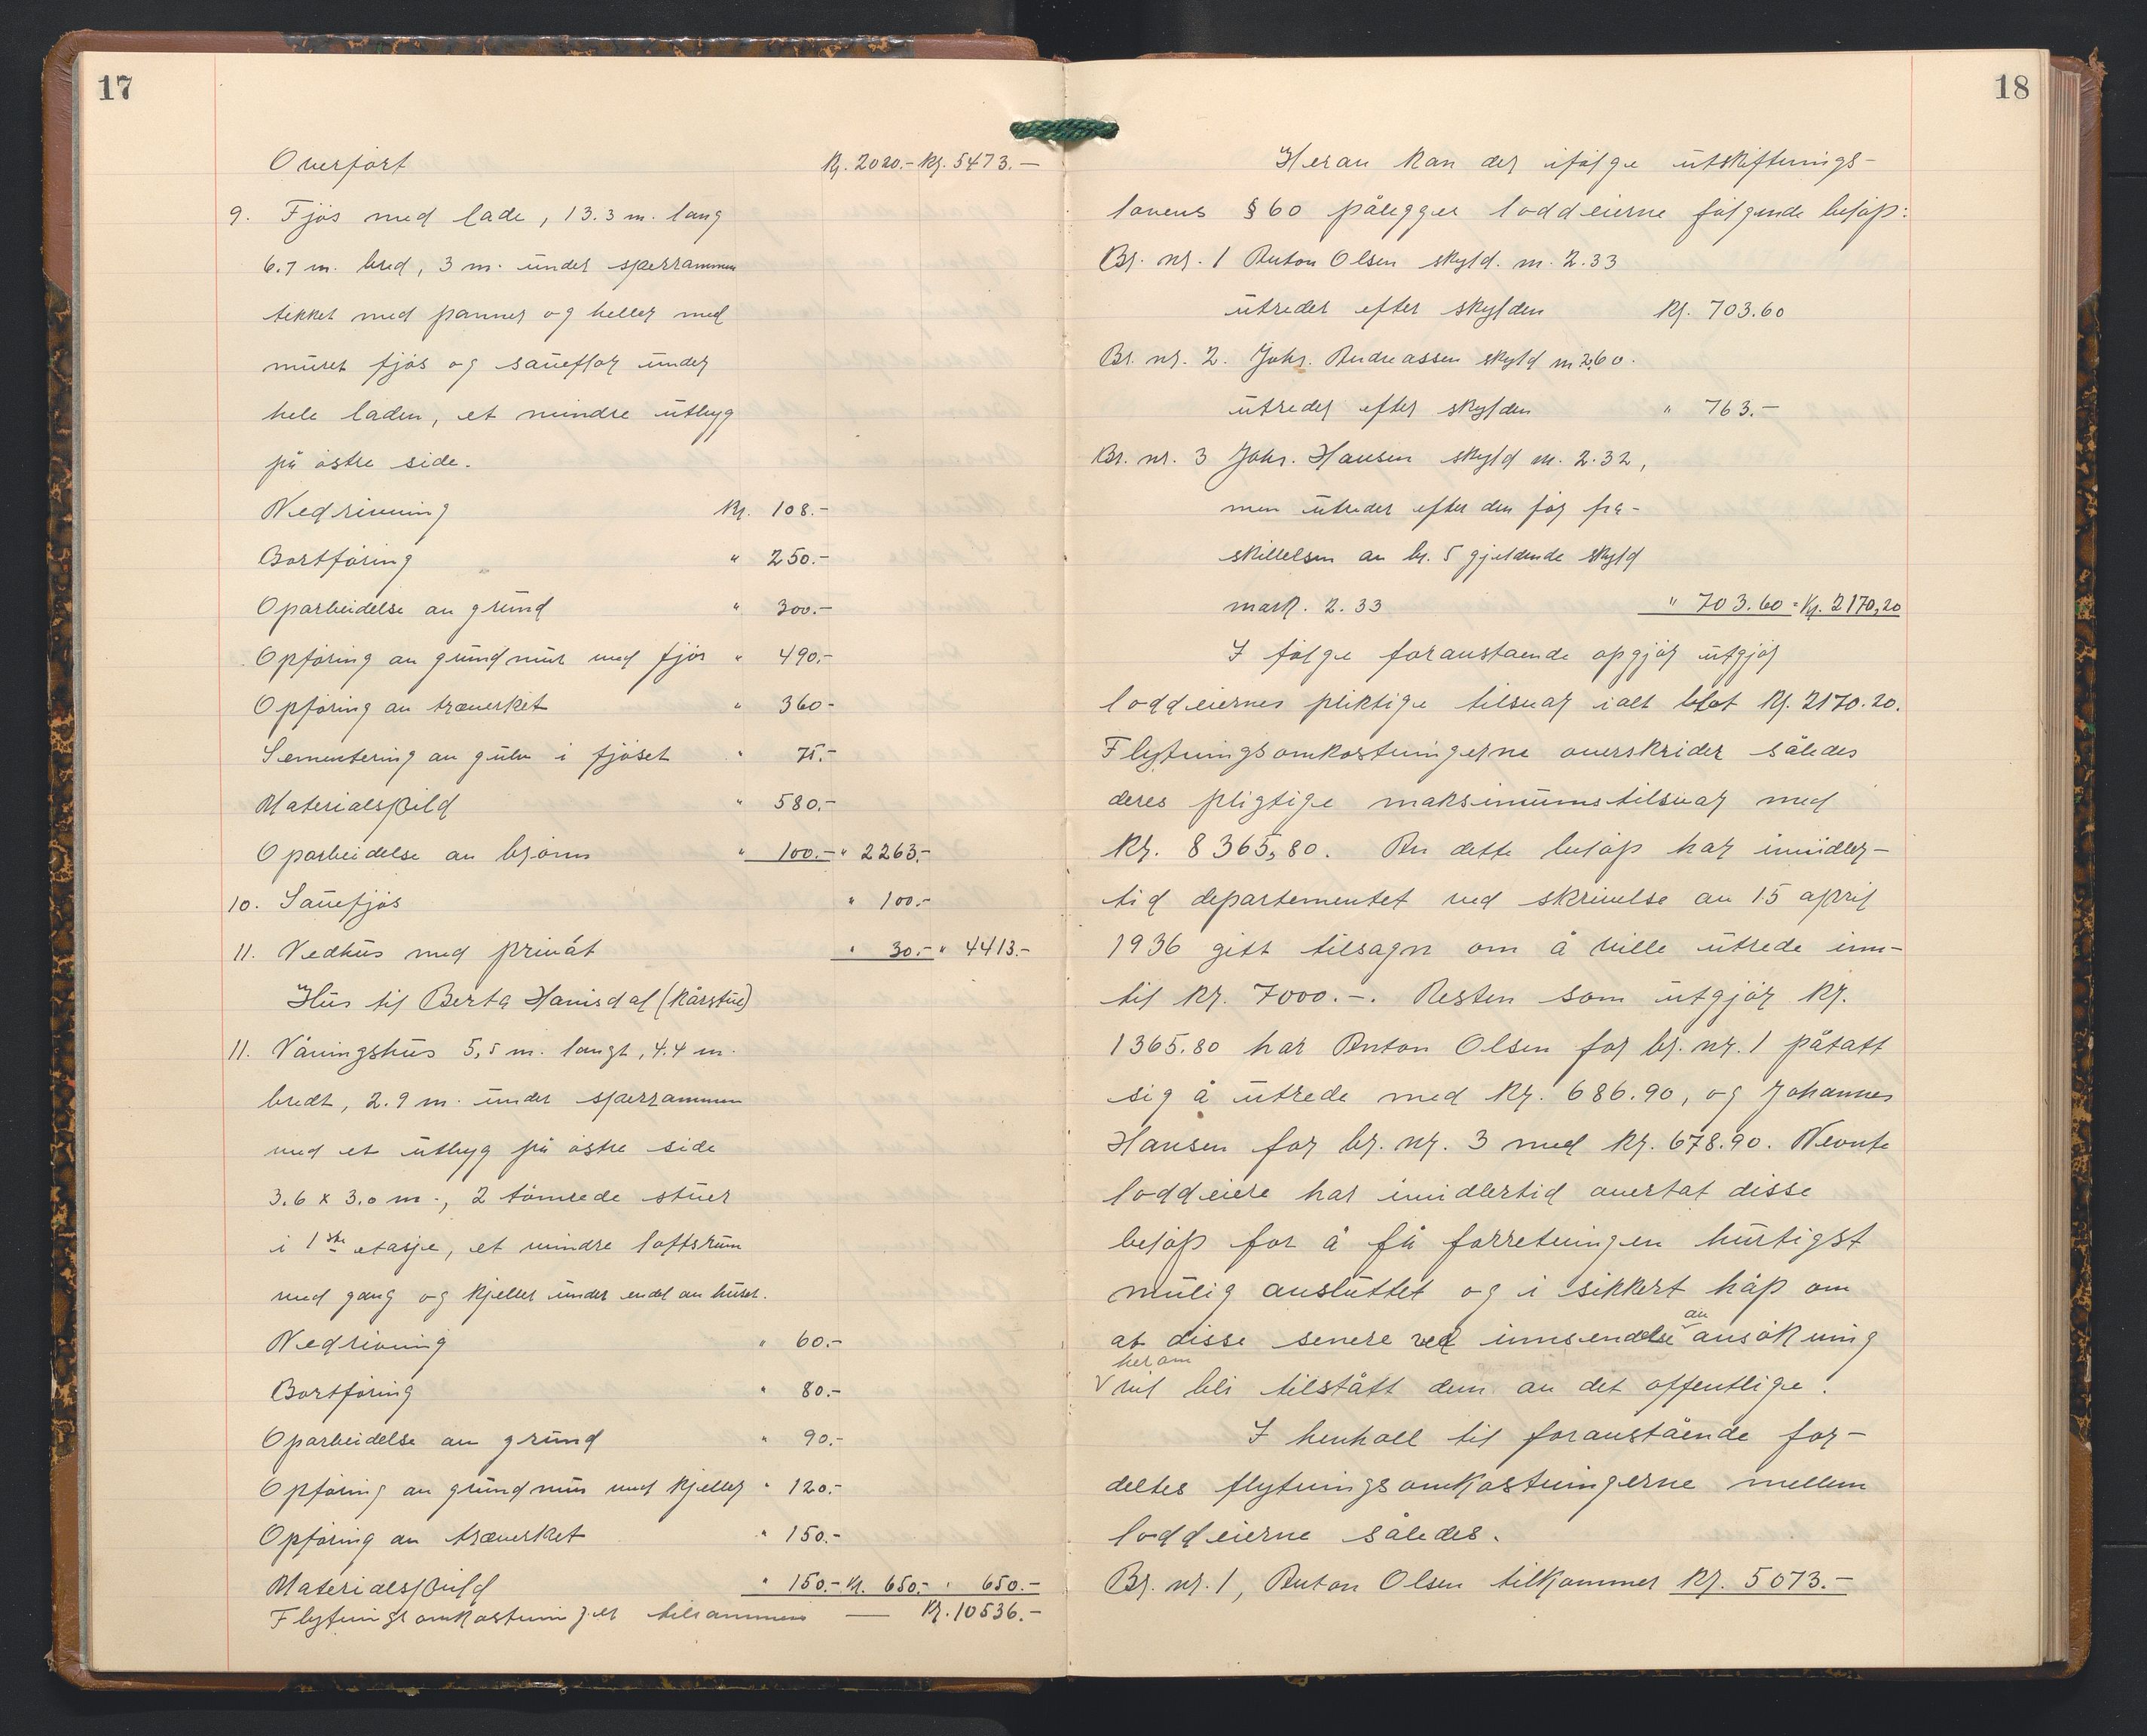 17
Overført kr. 2020.- kr. 5473.-
9. Fjøs med lade, 13.3 m. lang
6.7 m. bred, 3 m. under sperrammen
tekket med panner og heller med
muret fjøs og sauefløy under
hele laden, et mindre utbyg
på østre side.
Nedrivning kr. 108.-
Bortføring " 250.-
Oparbeidelse av grund " 300.-
Opføring av grundmur med fjøs " 490.-
Opføring av træverket " 360-
Sementering av gulv i fjøset " 75.-
Materialspild " 580.-
Oparbeidelse av brønn " 100.- " 2263.-
10. Sauefjøs " 100.-
11. Vedhus med privát " 30.- " 4413.-
Hus til Berta Havisdal (kårstue)
11. Våningshus 5,5 m. langt, 4.4 m.
bredt, 2.9 m. under sperrammen
med et utbyg på østre side
3.6 x 3.0 m., 2 tømrede stuer
i 1ste etasje, et mindre loftsrum
med gang og kjeller under endel av huset.
Nedrivning " 60.-
Bortføring " 80.-
Oparbeidelse av grund " 90.-
Opføring av grundmur med kjeller " 120.-
Opføring av træverket " 150.-
Materialspild " 150.- kr. 650.- " 650.-
Flytningsomkostninger tilsammen — kr. 10536.-
18
Herav kan der ifølge utskiftnings-
lovens § 60 pålegges loddeierne følgende beløp:
Br. nr. 1 Anton Olsen skyld. m. 2.33
utredes efter skylden kr. 703.60
Br. nr. 2. Johs. Andreassen skyld m 2.60.
utredes efter skylden " 763.-
Br. nr. 3 Johs. Hansen skyld m. 2.32,
men utredes efter den før fra-
skillelsen av br. 5 gjeldende skyld
mark. 2.33 " 703.60 = kr. 2170,20
I følge foranstaende opgjør utgjør
loddeiernes pliktige tilsvar ialt blot kr. 2170.20.
Flytningsomkostningerne overskrider således
deres pligtige maksimumstilsvar med
kr. 8365,80. Av dette beløp har imidler-
tid departementet ved skrivelse av 15 april
1936 gitt tilsagn om å ville utrede inn-
til kr. 7000.-. Resten som utgjør kr.
1365.80 har Anton Olsen for br. nr. 1 påtatt
sig å utrede med kr. 686.90, og Johannes
Hansen for br. nr. 3 med kr. 678.90. Nevnte
loddeiere har imidlertid overtat disse
beløp for å få forretningen hurtigst
mulig avsluttet og i sikkert håp om
at disse senere ved innsendelse av ansøkning
herom vil bli tilstått dem av det offentlige.
I henhold til foranstående for-
deltes flytningsomkostningerne mellem
loddeierne således.
Br. nr. 1, Anton Olsen tilkommer kr. 5073.-